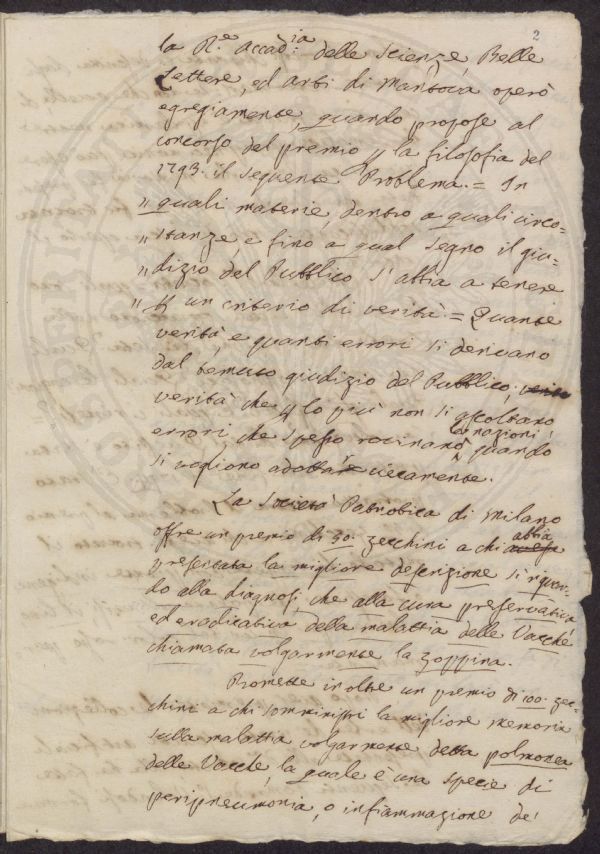 2
la R.e Accad.ia delle Scienze, Belle
Lettere, ed Arti di Mantova operò
egregiamente, quando propose al
concorso del premio p la filosofia del
1793. il seguente Problema. = In
" quali materie, dentro a quali circo=
" stanze e fino a qual segno il giu=
" dizio del Pubblico s'abbia a tenere
" p un criterio di verità. = Quante
verità, e quanti errori si derivano
dal temuto giudizio del Pubblico;
verità che p lo più non si ascoltano,
errori, che spesso rovinano le nazioni, quando
si vogliono adottare ciecamente.
La Società Patriotica di Milano
offre un premio di 30. zecchini a chi abbia
presentata la migliore descrizione sì riguar=
do alla diagnosi, che alla cura preservativa
ed eradicativa della malattia delle Vacche
chiamata volgarmente la zoppina.
Promette inoltre un premio di 100. zec=
chini a chi somministri la migliore memoria
sulla malattia volgarmente detta polmonea
delle Vacche, la quale è una specie di
peripneumonia, o infiammazione de'